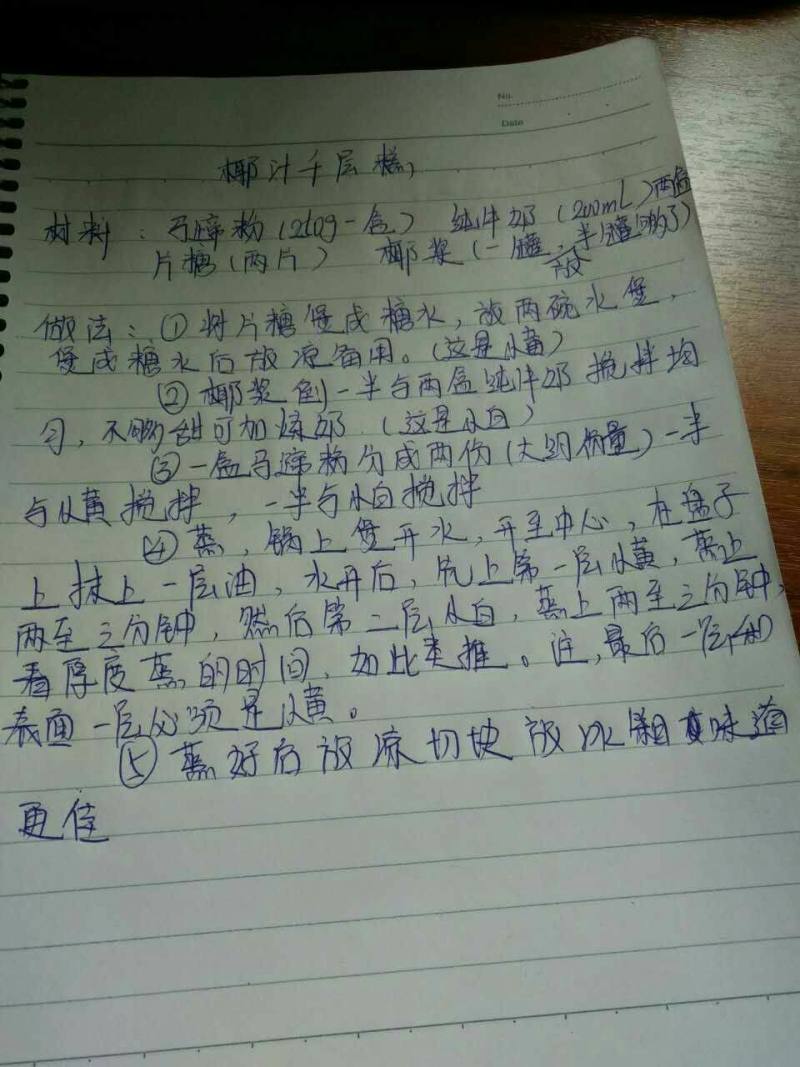 No.
Date
椰汁千层糕
材料：马蹄粉（250g一盒） 纯牛奶（200mL）两盒
片糖（两片） 椰浆（一罐，放半罐够了）
做法：① 将片糖煲成糖水，放两碗水煲，
煲成糖水后放凉备用。（这是小黄）
② 椰浆倒一半与两盒纯牛奶搅拌均
匀，不够甜可加炼奶（这是小白）
③ 一盒马蹄粉分成两份（大约份量）一半
与小黄搅拌，一半与小白搅拌
④ 蒸，锅上煲开水，开至中心，在盘子
上抹上一层油，水开后，先上第一层小黄，蒸上
两至三分钟，然后第二层小白，蒸上两至三分钟，
看厚度蒸的时间，如此类推。注，最后一层和
表面一层必须是小黄。
⑤ 蒸好后放凉切块放冰箱味道
更佳